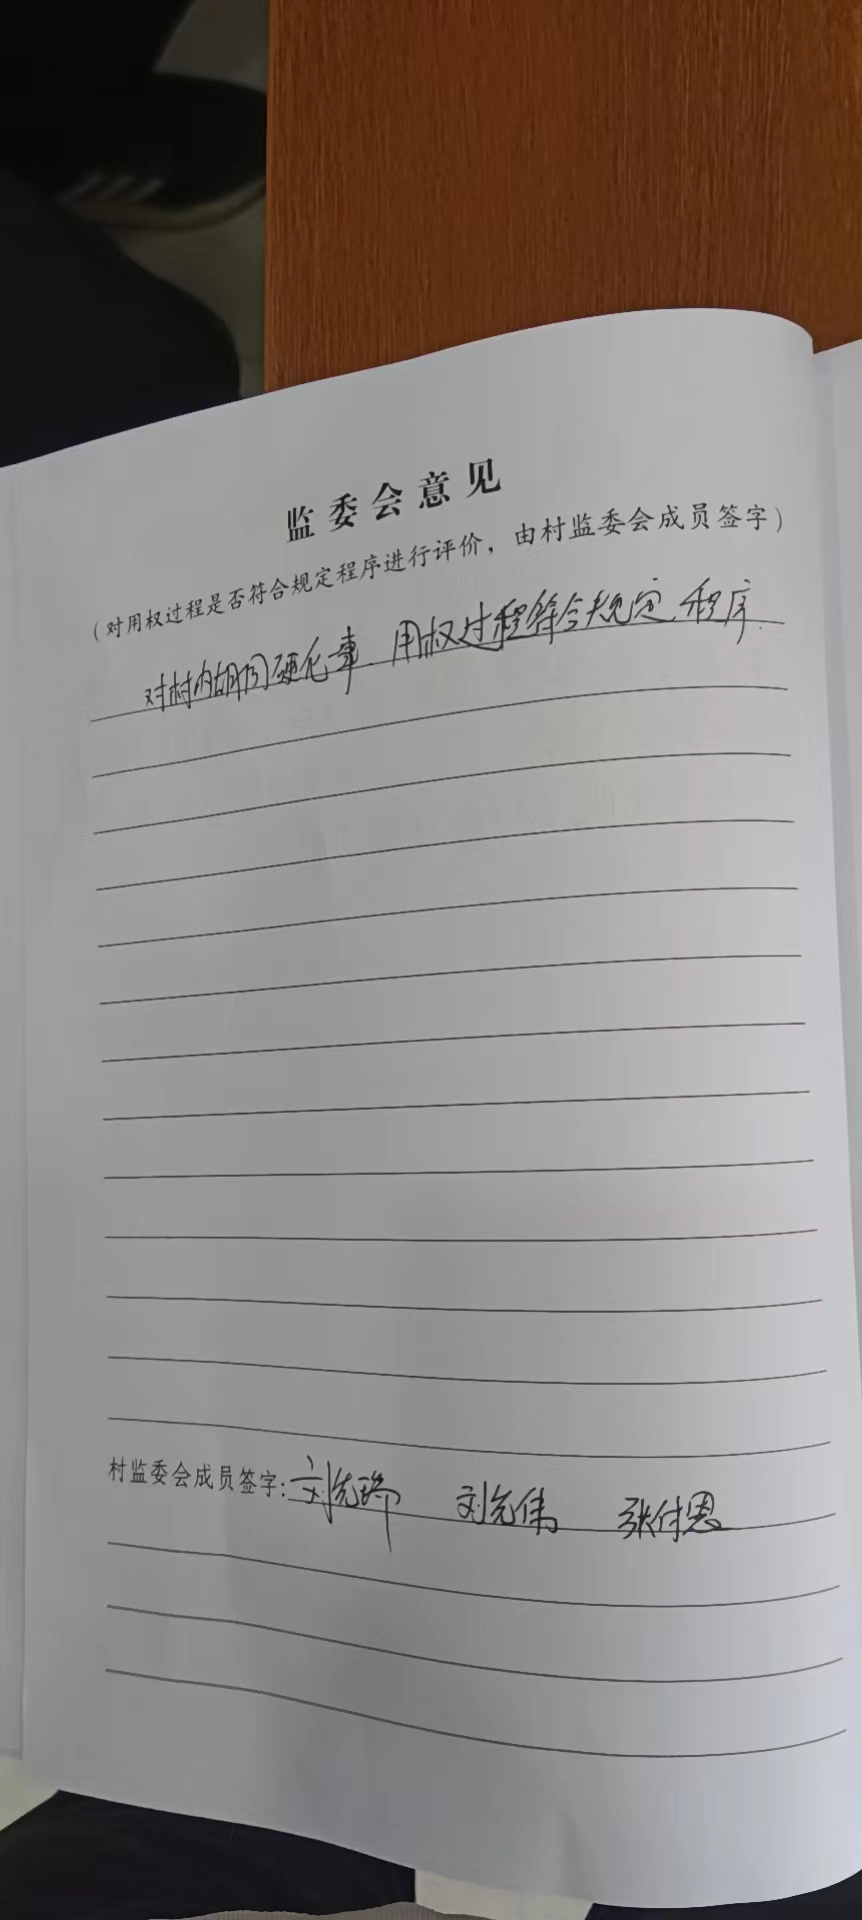 监委会意见
（对用权过程是否符合规定程序进行评价，由村监委会成员签字）
对村内胡同硬化事、用权过程符合规定程序.
村监委会成员签字: 刘先 刘先伟 张付恩